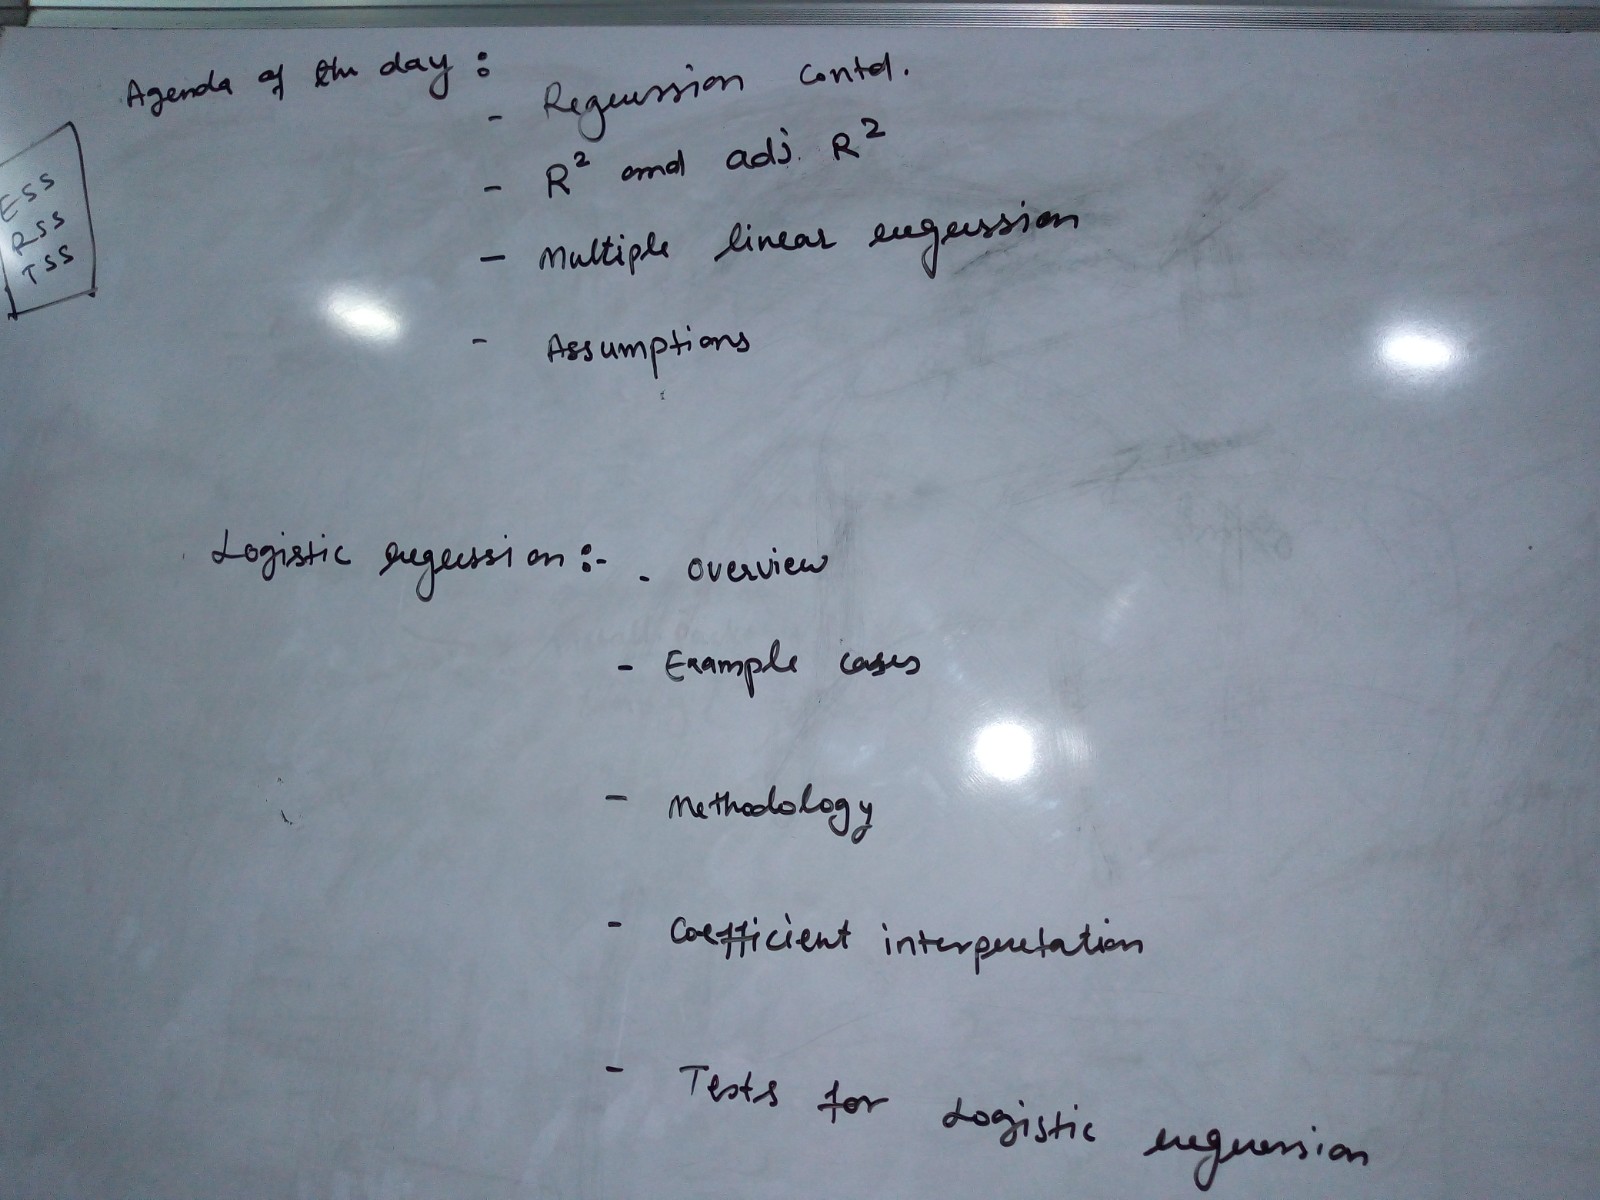 Agenda of the day :
- Regression contd.
- R² and adj. R²
- Multiple linear regression
- Assumptions
ESS
RSS
TSS
Logistic regression :- - overview
- Example cases
- Methodology
- Coefficient interpretation
- Tests for Logistic regression